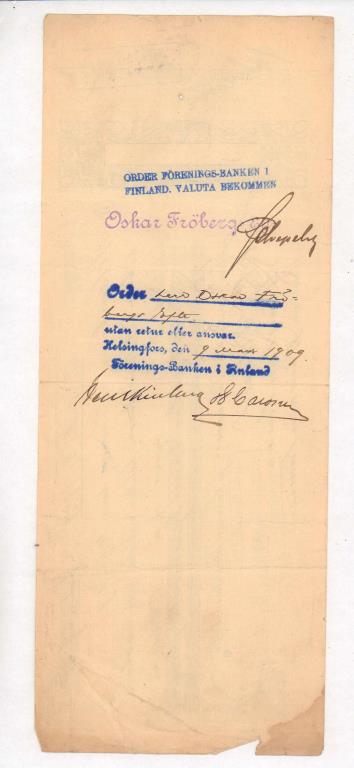 ORDER FÖRENINGS-BANKEN I
FINLAND. VALUTA BEKOMMEN
Oskar Fröberg
Order Herr Oskar Frö-
bergs
utan retur eller ansvar.
Helsingfors, den 9 Mars 1909.
Förenings-Banken i Finland